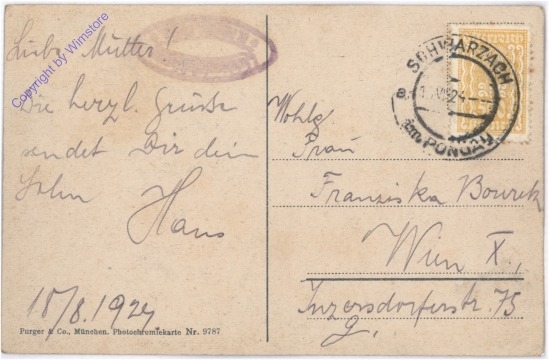 Liebe Mutter!
Die herzl. Grüße
sendet Dir dein
Sohn
Hans
18/8.1924
Purger & Co., München. Photochromiekarte Nr. 9787
SCHWARZACH
im PONGAU
Wohlg
Frau
Franziska Bourek
Wien X.,
Inzersdorferstr. 75
Copyright by Wimstore